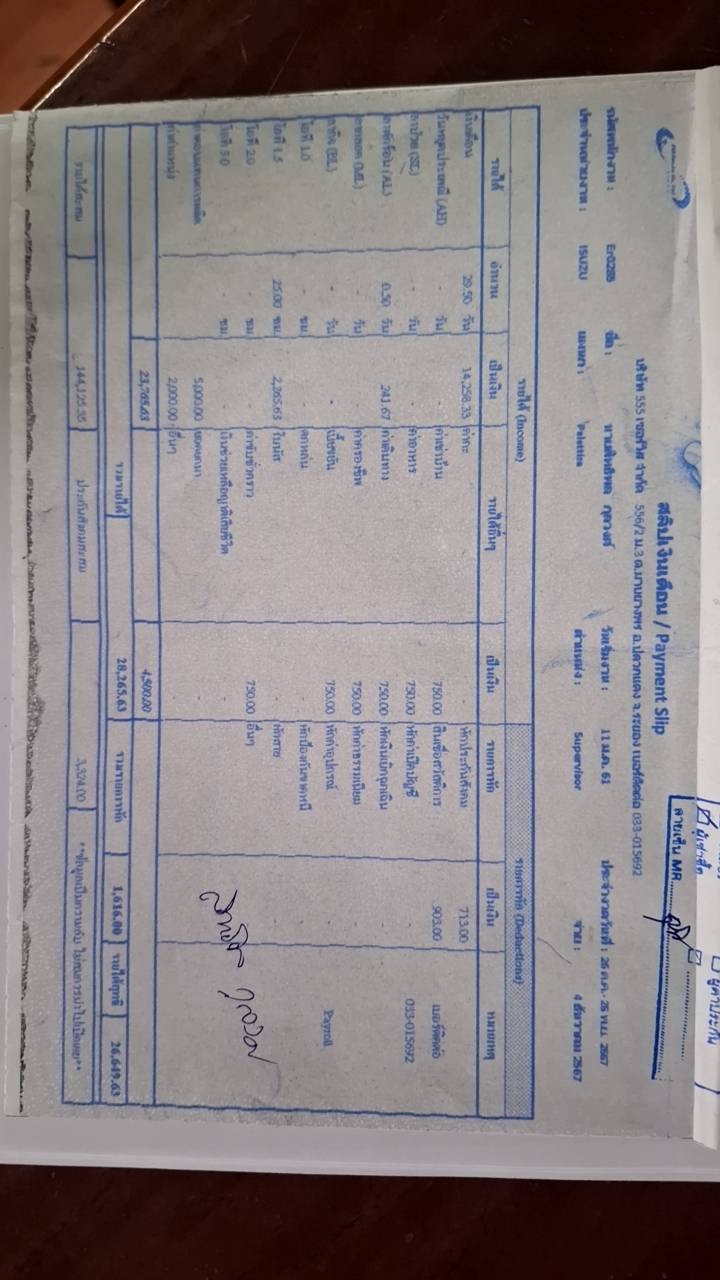 สลิปเงินเดือน / Payment Slip
บริษัท 555 เซอร์วิส จำกัด 556/2 ม.3 ต.มาบยางพร อ.ปลวกแดง จ.ระยอง เบอร์ติดต่อ 033-015692
รหัสพนักงาน : Er0285 ชื่อ : กุลวงศ์ วันเริ่มงาน : 11 ม.ค. 61 ประจำงวดวันที่ : 26 ต.ค.- 25 พ.ย. 2567
ประจำหน่วยงาน : ISUZU แผนก : Palettize ตำแหน่ง : Supervisor จ่าย : 4 ธันวาคม 2567
ผู้เช่าซื้อ ผู้ค้ำประกัน
ลายเซ็น MR
รายได้ (Income) รายการหัก (Deductions)
รายได้ จำนวน เป็นเงิน รายได้อื่นๆ เป็นเงิน รายการหัก เป็นเงิน หมายเหตุ
เงินเดือน 29.50 วัน 14,258.33 ค่ากะ - หักประกันสังคม 713.00
วันหยุดประเพณี (AH) - วัน - ค่าเช่าบ้าน 750.00 สินเชื่อสวัสดิการ 903.00 เบอร์ติดต่อ
ลาป่วย (SL) - วัน - ค่าอาหาร 750.00 หักค่าเปิดบัญชี - 033-015692
ลาพักร้อน (AL) 0.50 วัน 241.67 ค่าเดินทาง 750.00 หักเงินเบิกฉุกเฉิน -
ลาคลอด (ML) - วัน - ค่าครองชีพ 750.00 หักค่าธรรมเนียม -
ลากิจ (BL) - วัน - เบี้ยขยัน 750.00 หักค่าอุปกรณ์ - Payroll
โอที 1.0 - ชม. - ตกหล่น - หักป้องกันขาดหนี -
โอที 1.5 25.00 ชม. 2,265.63 โบนัส - หักสาย -
โอที 2.0 - ชม. - ค่าขับชั่วคราว 750.00 อื่นๆ -
โอที 3.0 - ชม. - เงินช่วยเหลือญาติเสียชีวิต -
ค่าตอบแทนการผลิต 5,000.00
ค่าตำแหน่ง 2,000.00 อื่นๆ -
23,765.63 4,500.00
รวมรายได้ 28,265.63 รวมรายการหัก 1,616.00 รายได้สุทธิ 26,649.63
รายได้สะสม 144,125.55 ประกันสังคมสะสม 3,324.00 **ข้อมูลเป็นความลับ ไม่สมควรนำไปเปิดเผย**